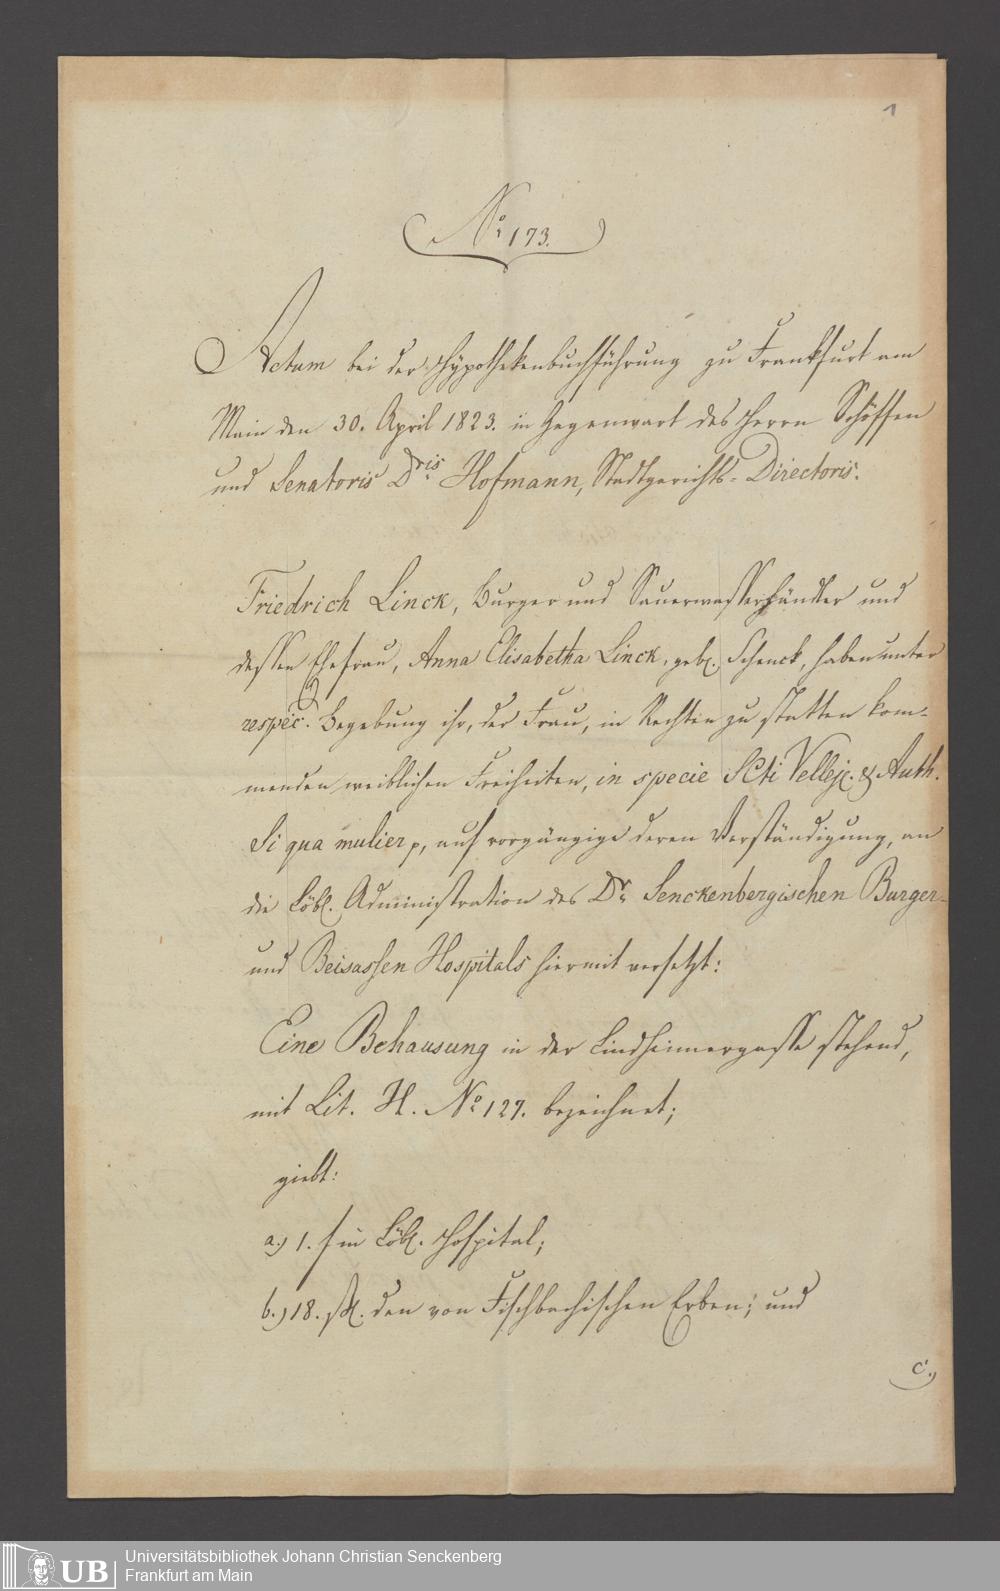 1
No. 173.
Actum bei der Hypothekenbuchführung zu Frankfurt am
Main den 30. April 1823. in Gegenwart des Herrn Schöffen
und Senatoris Dris. Hofmann, Stadtgerichts-Directoris.
Friedrich Linck, Burger und Sauerwasserhändler und
dessen Ehefrau, Anna Elisabetha Linck, geb. Schenck, haben unter
respec. Begebung ihr, der Frau, in Rechten zu statten kom-
menden weiblichen Freiheiten, in specie SCti Vellej. & Auth.
Si qua mulier p, auf vorgängige deren Verständigung, an
die Löbl. Administration des Dr. Senckenbergischen Burger-
und Beisassen Hospitals hiermit versetzt:
Eine Behausung in der Lindheimergasse stehend,
mit Lit. H. No. 127. bezeichnet;
giebt:
a.) 1. f in Löbl. Hospital;
b.) 18. ßl. den von Fischbachischen Erben; und
c.)
UB
Universitätsbibliothek Johann Christian Senckenberg
Frankfurt am Main